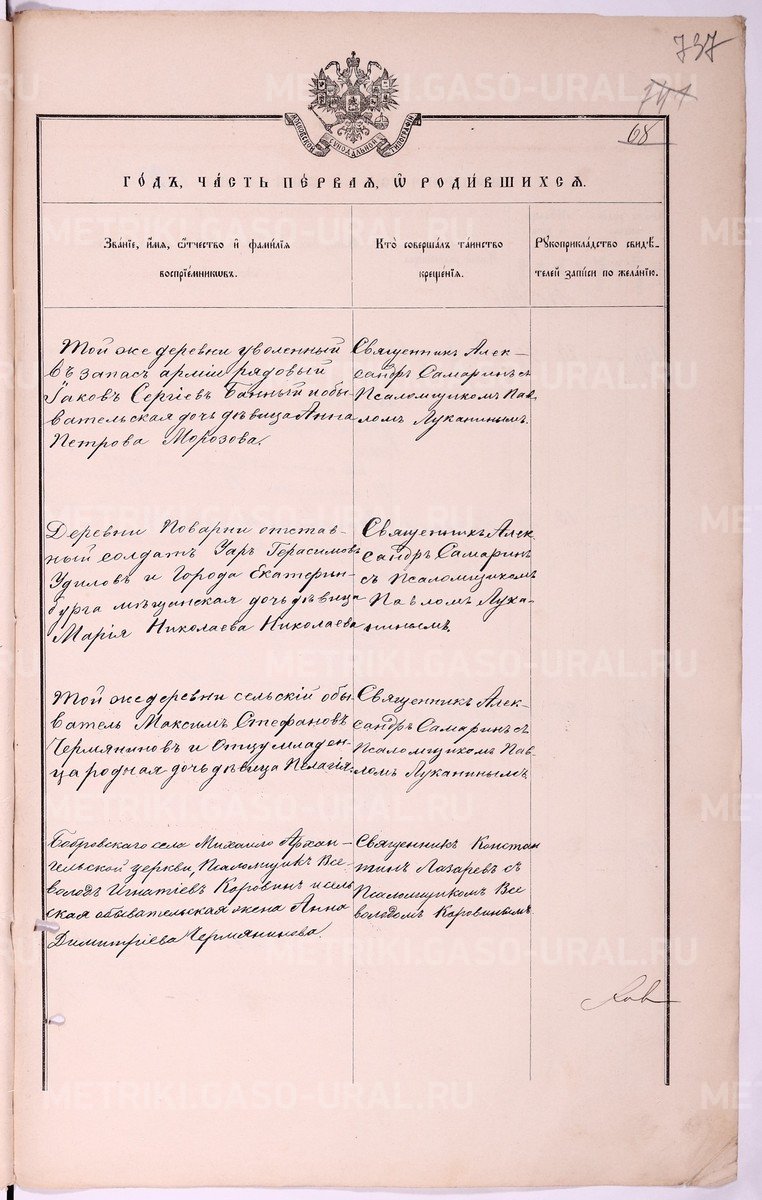 737
741
68
МОСКОВСКОЙ СѴНОДАЛЬНОЙ ТИПОГРАФІИ
ГО́ДЪ, ЧА́СТЬ ПЕ́РВАЯ, Ѡ҆ РОДИ́ВШИХСЯ.
Зва́нїе, и҆́мя, ѻ҆́тчество и҆ фами́лїя
воспрїе́мникѡвъ.
Кто̀ соверша́лъ та́инство
креще́нїя.
Рꙋкоприкла́дство свидѣ́-
телей за́писи по жела́нїю.
Той же деревни уволенный
въ запасъ арміи рядовый
Іаковъ Сергіевъ Банный и обы-
вательская дочь дѣвица Анна
Петрова Морозова.
Священникъ Алек-
сандръ Самаринъ съ
Псаломщикомъ Пав-
ломъ Луканинымъ.
Деревни Поварни отстав-
ный солдатъ Уаръ Герасимовъ
Удиловъ и Города Екатерин-
бурга мѣщанская дочь дѣвица
Марія Николаева Николаева
Священникъ Алек-
сандръ Самаринъ
съ Псаломщикомъ
Павломъ Лука-
нинымъ.
Той же деревни сельскій обы-
ватель Максимъ Стефановъ
Чермяниновъ и Отцу младен-
ца родная дочь дѣвица Пелагія.
Священникъ Алек-
сандръ Самаринъ съ
Псаломщикомъ Пав-
ломъ Луканинымъ.
Бобровскаго села Михаило Архан-
гельской церкви, Псаломщикъ Все-
володъ Игнатіевъ Коровинъ и сель-
ская обывательская жена Анна
Димитріева Чермянинова.
Священникъ Констан
тинъ Лазаревъ съ
Псаломщикомъ Все-
володомъ Коровинымъ.
METRIKI.GASO-URAL.RU